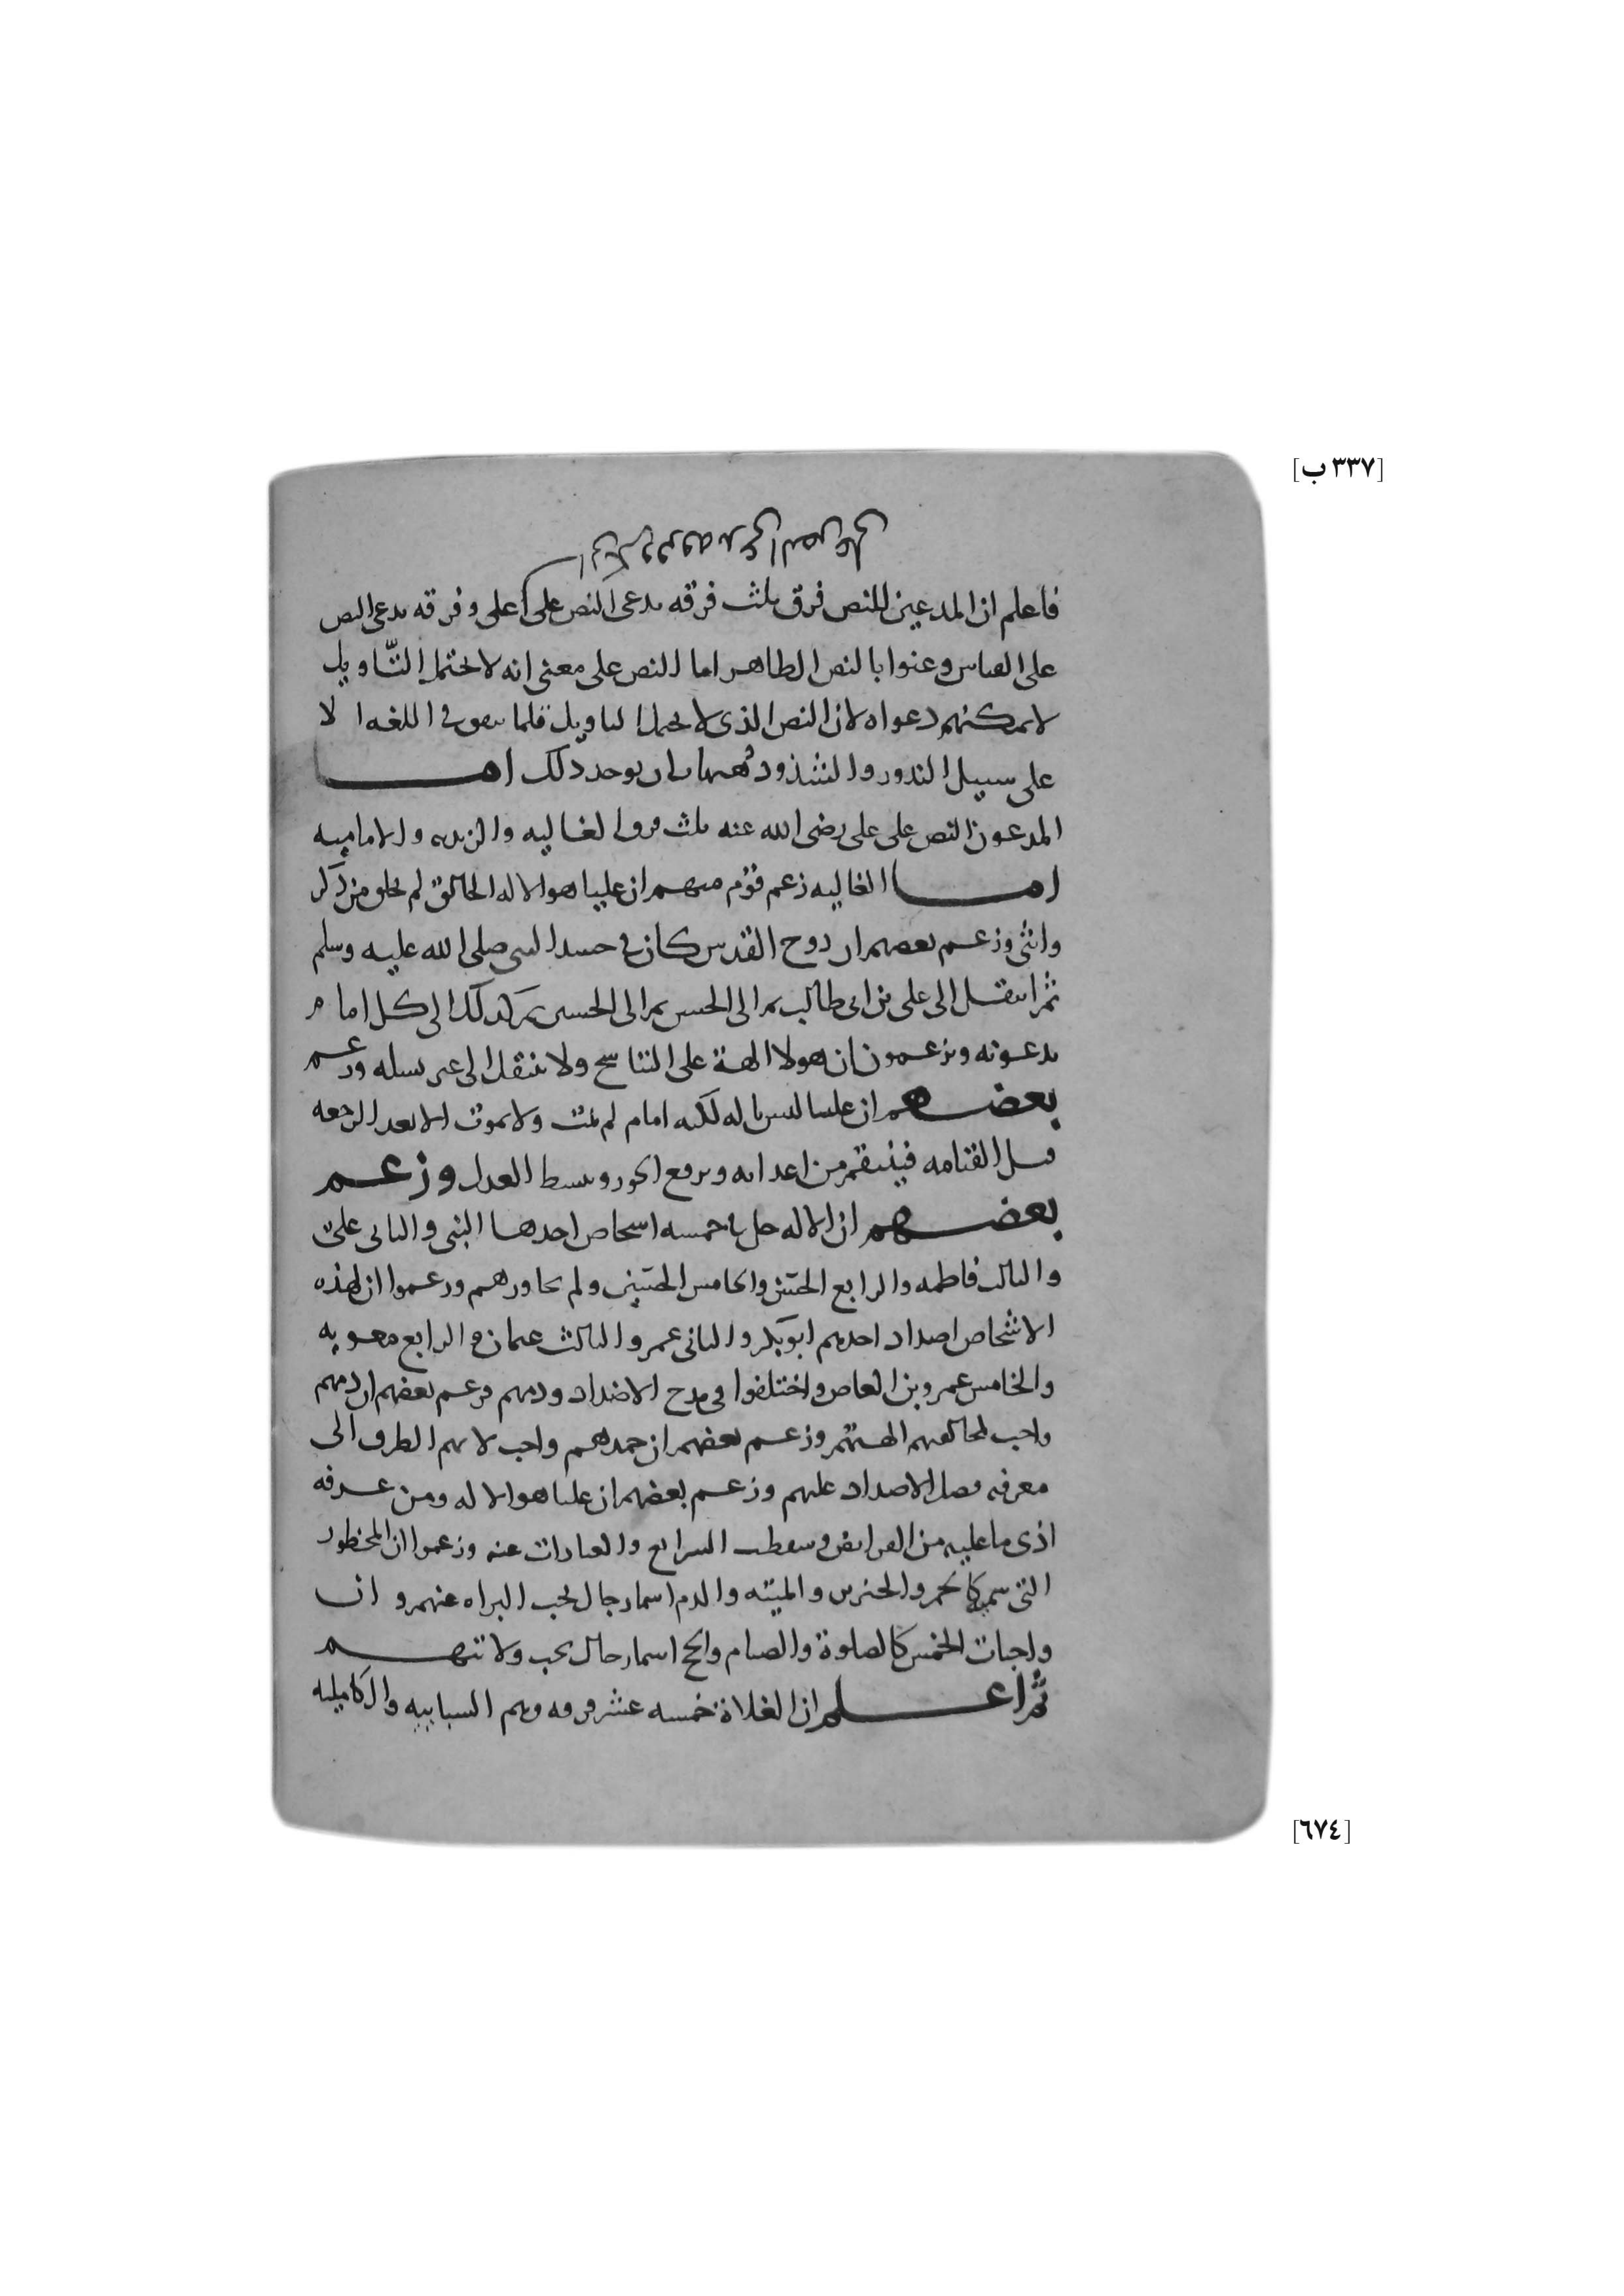 [٣٣٧ ب]
ابى بكر وفرقه يدعى النص على
فاعلم ان المدعين للنص فرق ثلث فرقه يدعى النص على على وفرقه يدعى النص
على العباس وعنوا بالنص الظاهر اما النص على معنى انه لا يحتمل التّاويل
لا يمكنهم دعواه لان النص الذى لا يحتمل التاويل قلما يتفق فى اللغه الا
على سبيل الندور والشذوذ يوجد ذلك اما
المدعون النص على على رضى الله عنه ثلث فرق الغاليه والزيديه والاماميه
اما الغاليه زعم قوم منهم ان عليا هو الاله الخالق لم يخلق من ذكر
وانثى وزعم بعضهم ان روح القدس كان فى جسد النبى صلى الله عليه وسلم
ثم انتقل الى على بن ابى طالب ثم الى الحسن ثم الى الحسين ثم كذلك الى كل امام
يدعونه ويزعمون ان هولا الهة على التناسخ ولا ينتقل الى غير نسله وزعم
بعضهم ان عليا ليس باله لكنه امام لم يمت ولا يموت الا بعد الرجعه
قبل القيامه فينتقم من اعدايه ويرفع الجور ويبسط العدل وزعم
بعضهم ان الاله حل فى خمسه اشخاص احدها النبى والثانى على
والثالث فاطمه والرابع الحسن والخامس الحسين ولم يجاوزهم وزعموا ان لهذه
الاشخاص اضداد احدهم ابو بكر والثانى عمر والثالث عثمان والرابع معويه
والخامس عمرو بن العاص واختلفوا فى مدح الاضداد وذمهم فزعم بعضهم ان ذمهم
واجب لمخالفتهم الهتهم وزعم بعضهم ان حمدهم واجب لانهم الطرق الى
معرفه فضل الاضداد عليهم وزعم بعضهم ان عليا هو الاله ومن عرفه
ادى ما عليه من الفرايض وسقطت الشرايع والعبادات عنه وزعموا ان المحظور
التى كالخمر والخنزير والميته والدم اسما رجال يجب البراه عنهم وان
واجبات الخمس كالصلوة والصيام والحج اسما رجال يجب ولايتهم
ثم اعلم ان الغلاة خمسه عشر فرقه وهم السباييه والكامليه
[٦٧٤]